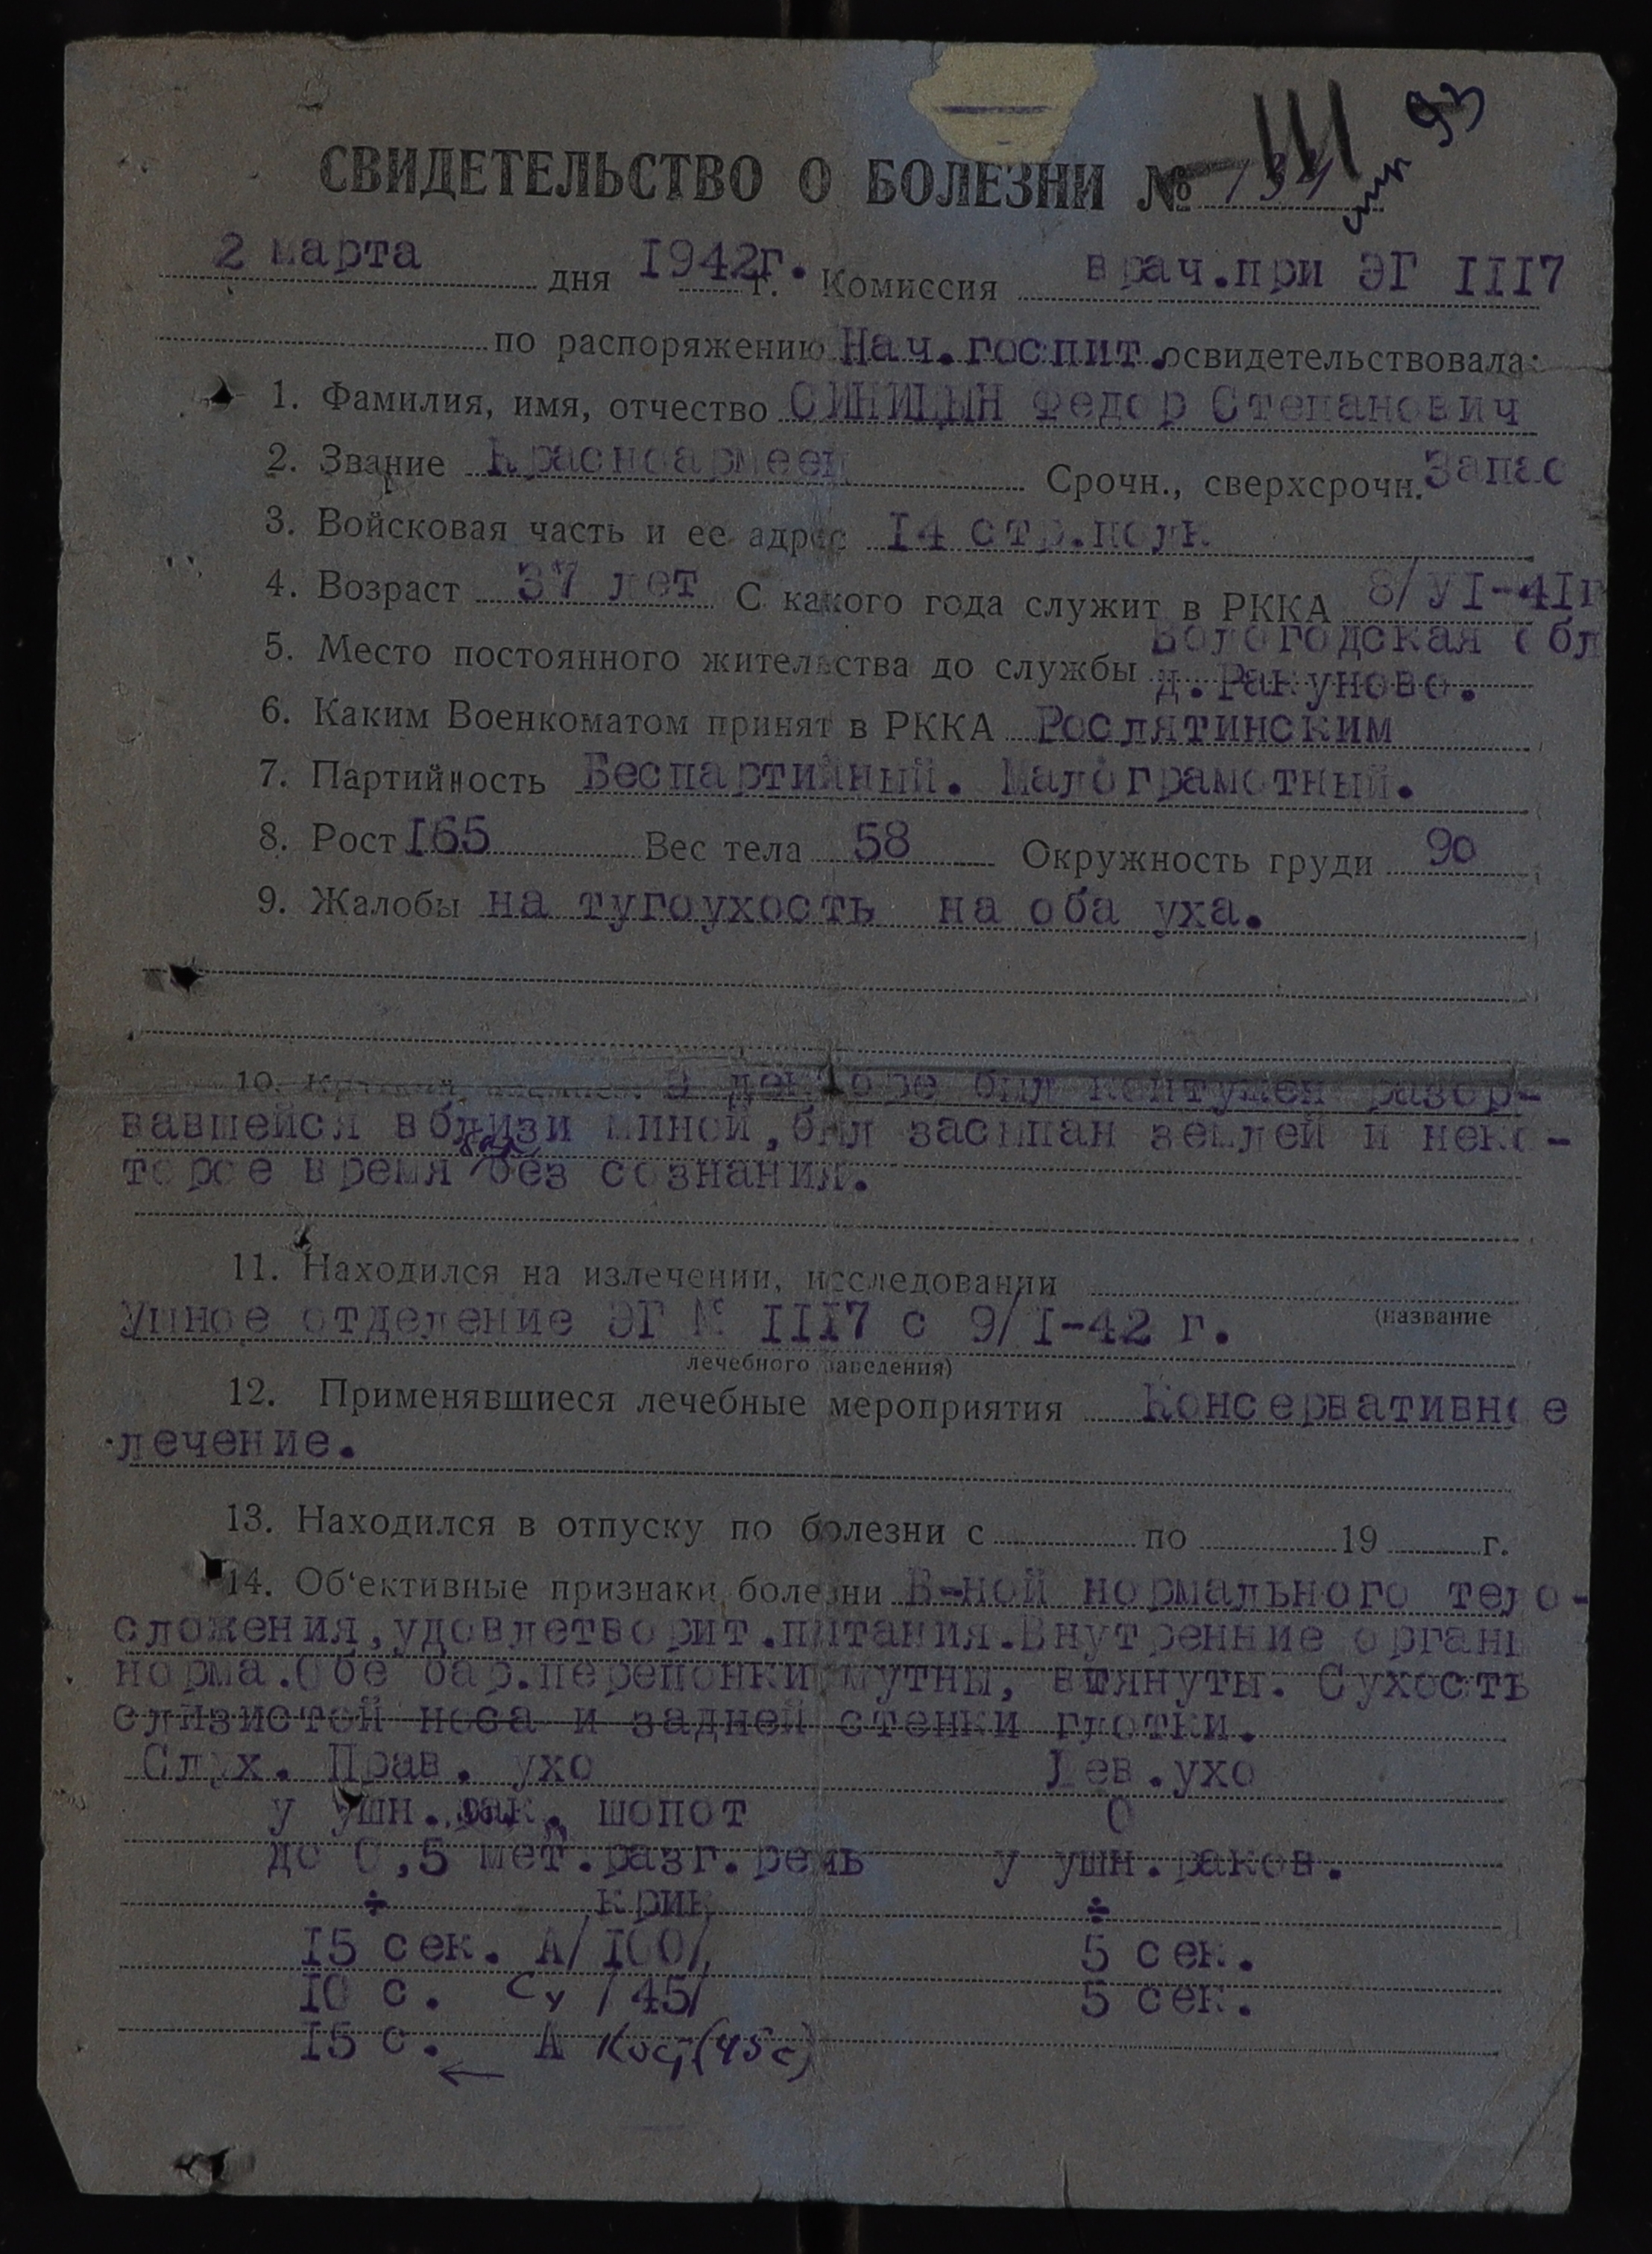 93
СВИДЕТЕЛЬСТВО О БОЛЕЗНИ №
2 марта дня 1942г. г. Комиссия врач.при ЭГ III7
по распоряжению Нач.госпит. освидетельствовала:
1. Фамилия, имя, отчество СИНИЦЫН Федор Степанович
2. Звание Красноармеец Срочн., сверхсрочн. Запас
3. Войсковая часть и ее адрес I4 стр.полк
4. Возраст 37 лет С какого года служит в РККА 8/УI-4Iг
5. Место постоянного жительства до службы Вологодская обл
д. Ракуново.
6. Каким Военкоматом принят в РККА Рослятинским
7. Партийность Беспартийный. Малограмотный.
8. Рост I65 Вес тела 58 Окружность груди 90
9. Жалобы на тугоухость на оба уха.
10. В декаоре был контужен разор-
вавшейся вблизи миной,был засыпан землей и неко-
торое время был без сознания.
11. Находился на излечении, исследовании
Ушное отделение ЭГ № III7 с 9/I-42 г. (название
лечебного заведения)
12. Применявшиеся лечебные мероприятия Консервативное
лечение.
13. Находился в отпуску по болезни с по 19 г.
14. Об‘ективные признаки болезни В-ной нормального тело-
сложения,удовлетворит.питания.Внутренние органы
норма.Обе бар.перепонки мутны, втянуты. Сухость
слизистой носа и задней стенки глотки.
Слух. Прав. ухо Лев.ухо
у ушн. рак. шопот 0
до 0,5 мет.разг.речь у ушн.раков.
÷ крик ÷
I5 сек. А/I00/ 5 сек.
I0 с. Су /45/ 5 сек.
I5 с. А Кост(45с)